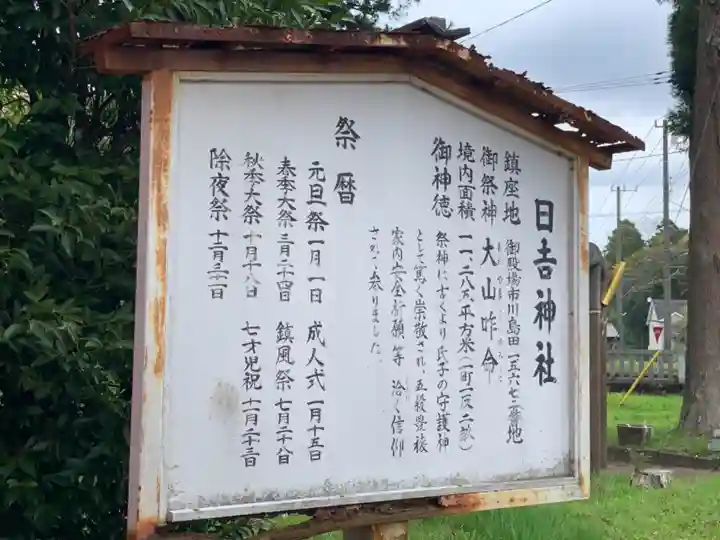 日吉神社
鎮座地 御殿場市川島田一五六七番地
御祭神 大山咋命
境内面積 一一、二八五平方米(一町一反二畝)
御神徳 祭神は古くより氏子の守護神
として篤く崇敬され、五穀豊穣
家内安全祈願等 洽く信仰
されて参りました。
祭暦
元旦祭 一月一日 成人式 一月十五日
春季大祭 三月二十四日 鎮風祭 七月二十八日
秋季大祭 十月十八日 七才児祝 十一月二十三日
除夜祭 十二月三一日